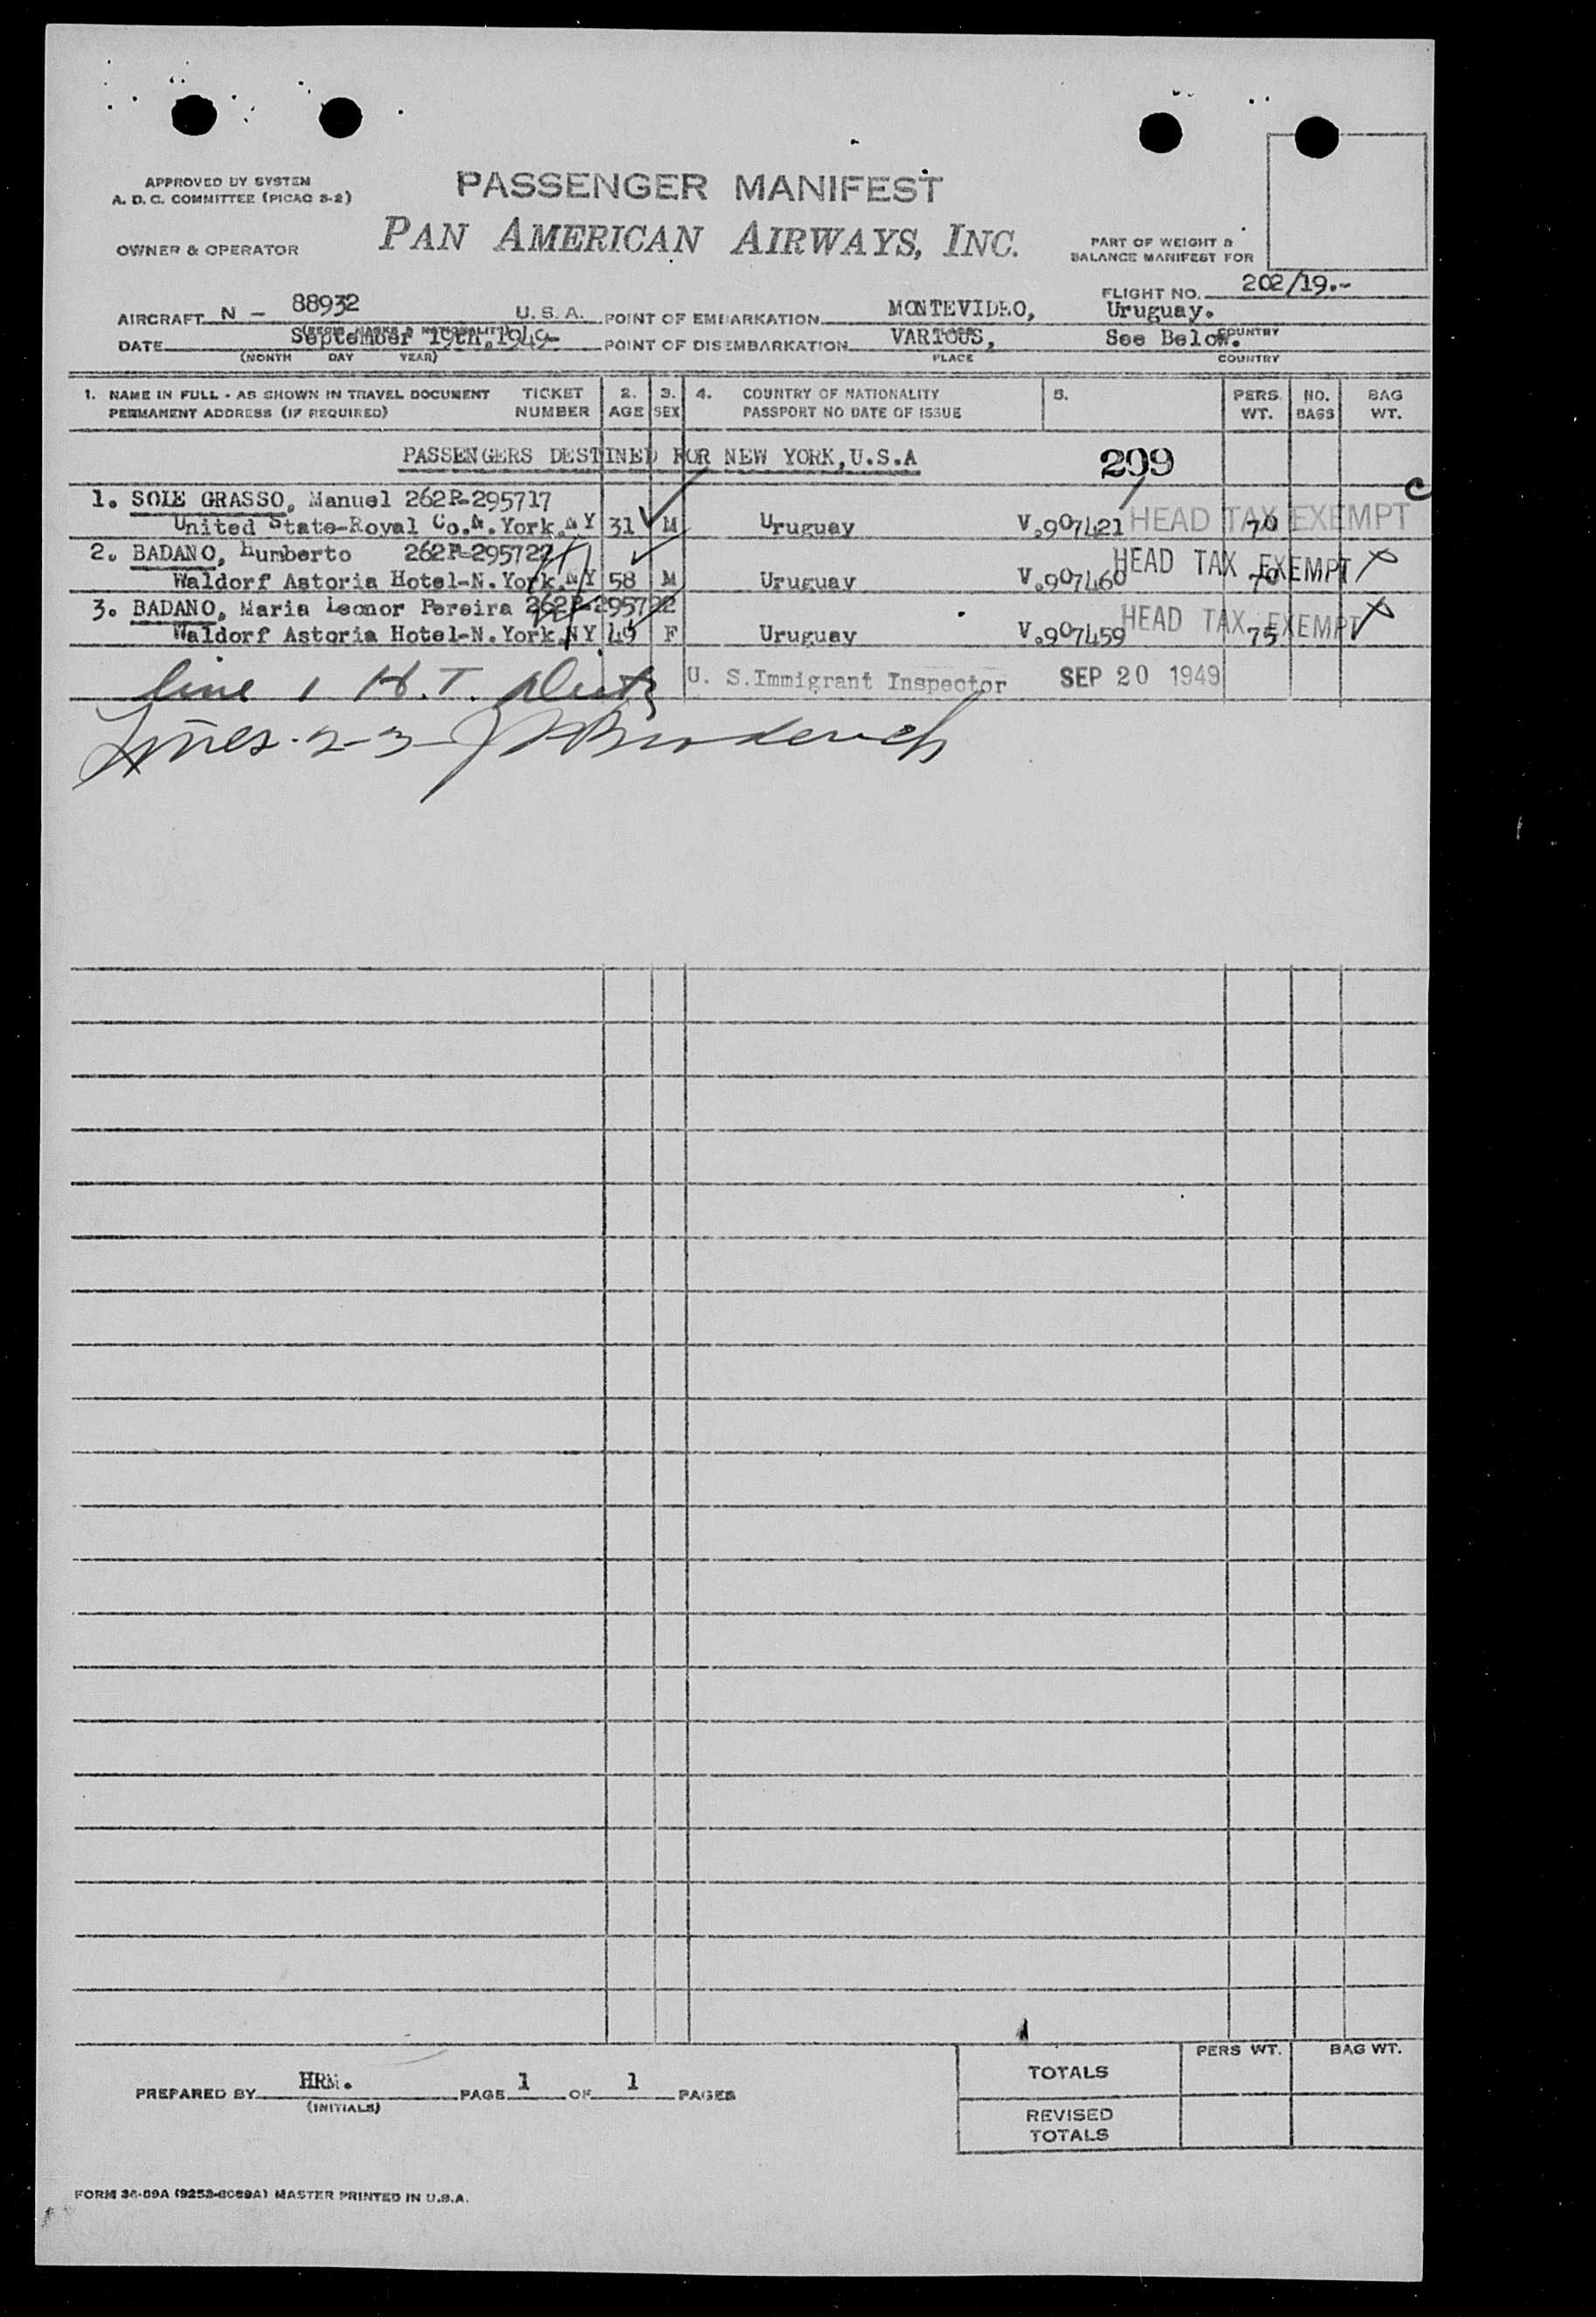 APPROVED BY SYSTEM
A. D. C. COMMITTEE (PICAO S-2)
PASSENGER MANIFEST
OWNER & OPERATOR
PAN AMERICAN AIRWAYS, INC.
PART OF WEIGHT &
BALANCE MANIFEST FOR
FLIGHT NO. 202/19.-
AIRCRAFT N - 88932 U. S. A. POINT OF EMBARKATION MONTEVIDEO, Uruguay.
(REGIS. MARKS & NATIONALITY) PLACE COUNTRY
DATE September 19th, 1949- POINT OF DISEMBARKATION VARIOUS, See Below.
(MONTH DAY YEAR) PLACE COUNTRY
1. NAME IN FULL - AS SHOWN IN TRAVEL DOCUMENT TICKET 2. 3. 4. COUNTRY OF NATIONALITY 5. PERS. NO. BAG
PERMANENT ADDRESS (IF REQUIRED) NUMBER AGE SEX PASSPORT NO DATE OF ISSUE WT. BAGS WT.
PASSENGERS DESTINED FOR NEW YORK, U.S.A 209
1. SOLE GRASSO, Manuel 262R-295717
United State-Royal Co.N. York, NY 31 M Uruguay V.907421 HEAD TAX EXEMPT 70 C
2. BADANO, Humberto 262R-295727
Waldorf Astoria Hotel-N. York, NY 58 M Uruguay V.907460 HEAD TAX EXEMPT 70
3. BADANO, Maria Leonor Pereira 262R-295722
Waldorf Astoria Hotel-N. York, NY 49 F Uruguay V.907459 HEAD TAX EXEMPT 75
line 1 H.T. U. S. Immigrant Inspector SEP 20 1949
Lines 2-3
PREPARED BY HRM. PAGE 1 OF 1 PAGES
(INITIALS)
PERS WT. BAG WT.
TOTALS
REVISED
TOTALS
FORM 36-89A (9253-6089A) MASTER PRINTED IN U.S.A.